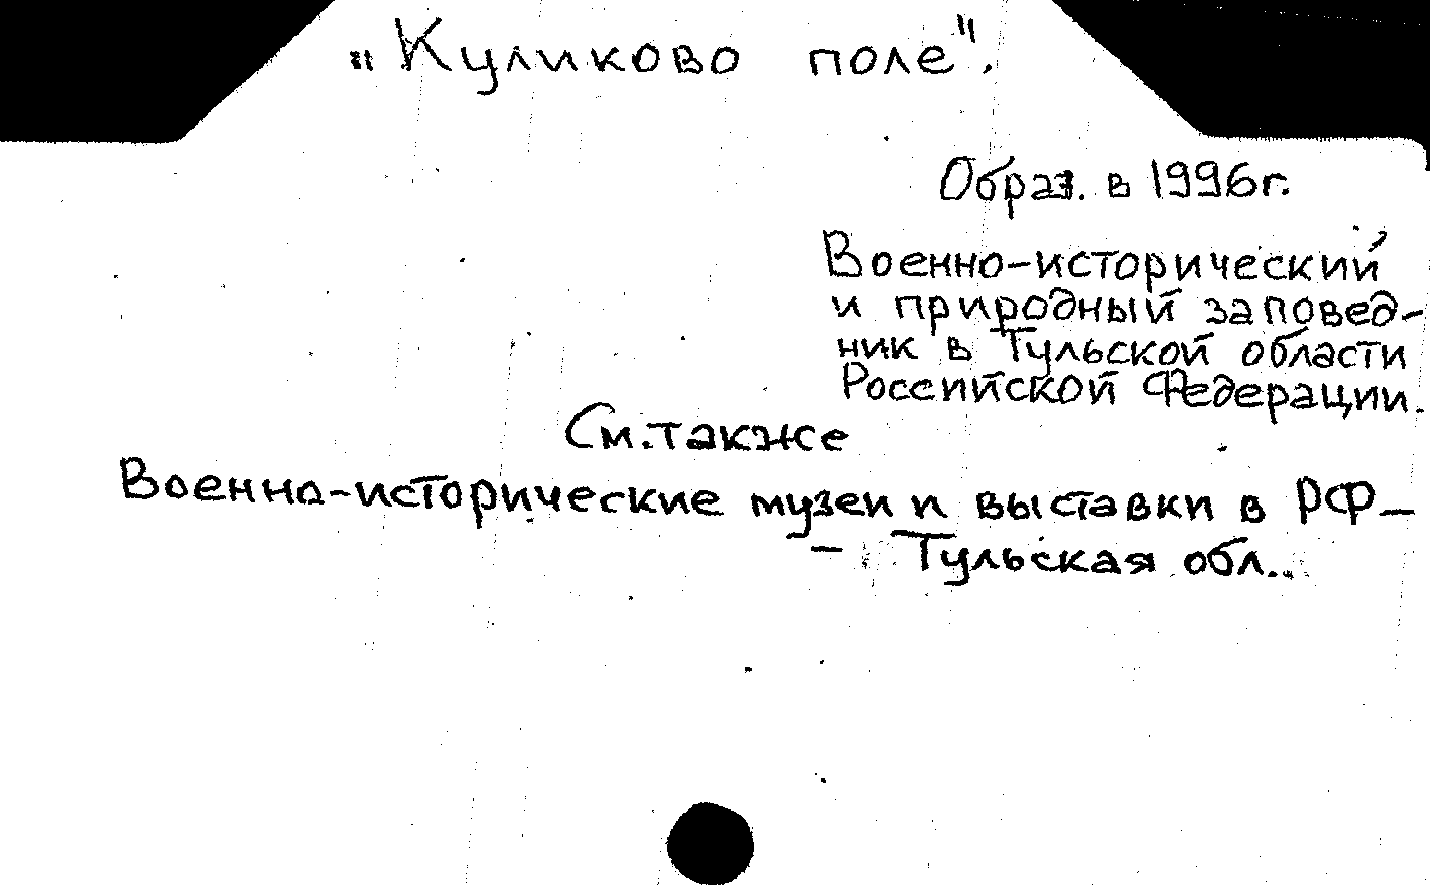 „Куликово поле".
Образ. в 1996г.
Военно-исторический
и природный заповед-
ник в Тульской области
Российской Федерации.
См. также
Военно-исторические музеи и выставки в РФ –
– Тульская обл..